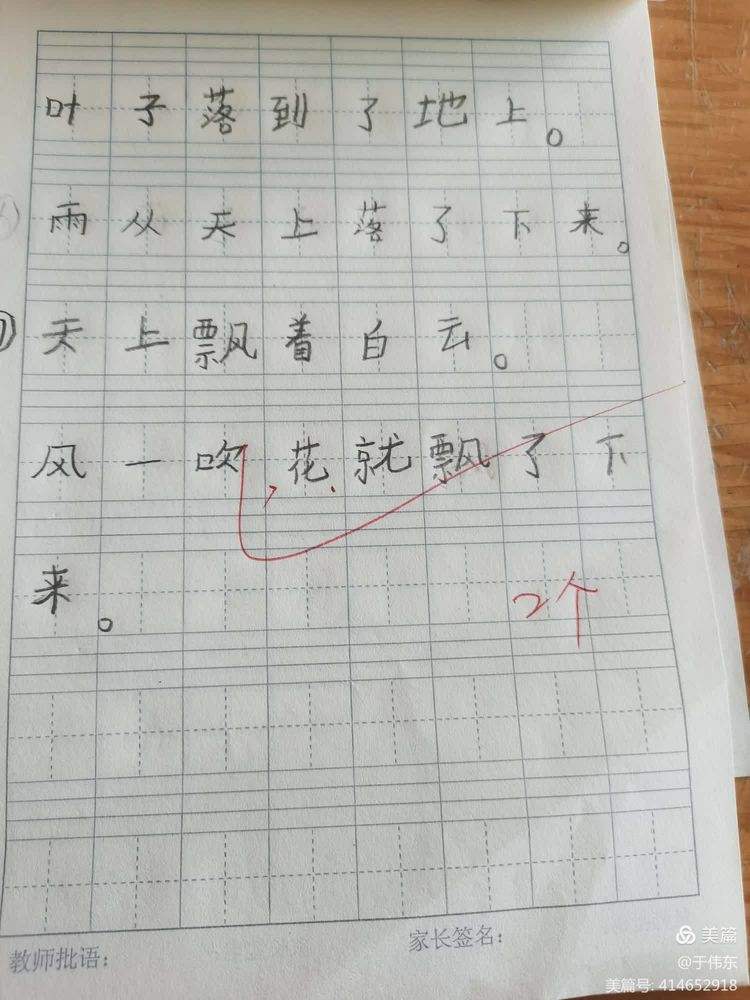 叶子落到了地上。
雨从天上落了下来。
天上飘着白云。
风一吹,花就飘了下
来。
2个
教师批语：
家长签名：
美篇
@于伟东
美篇号: 414652918